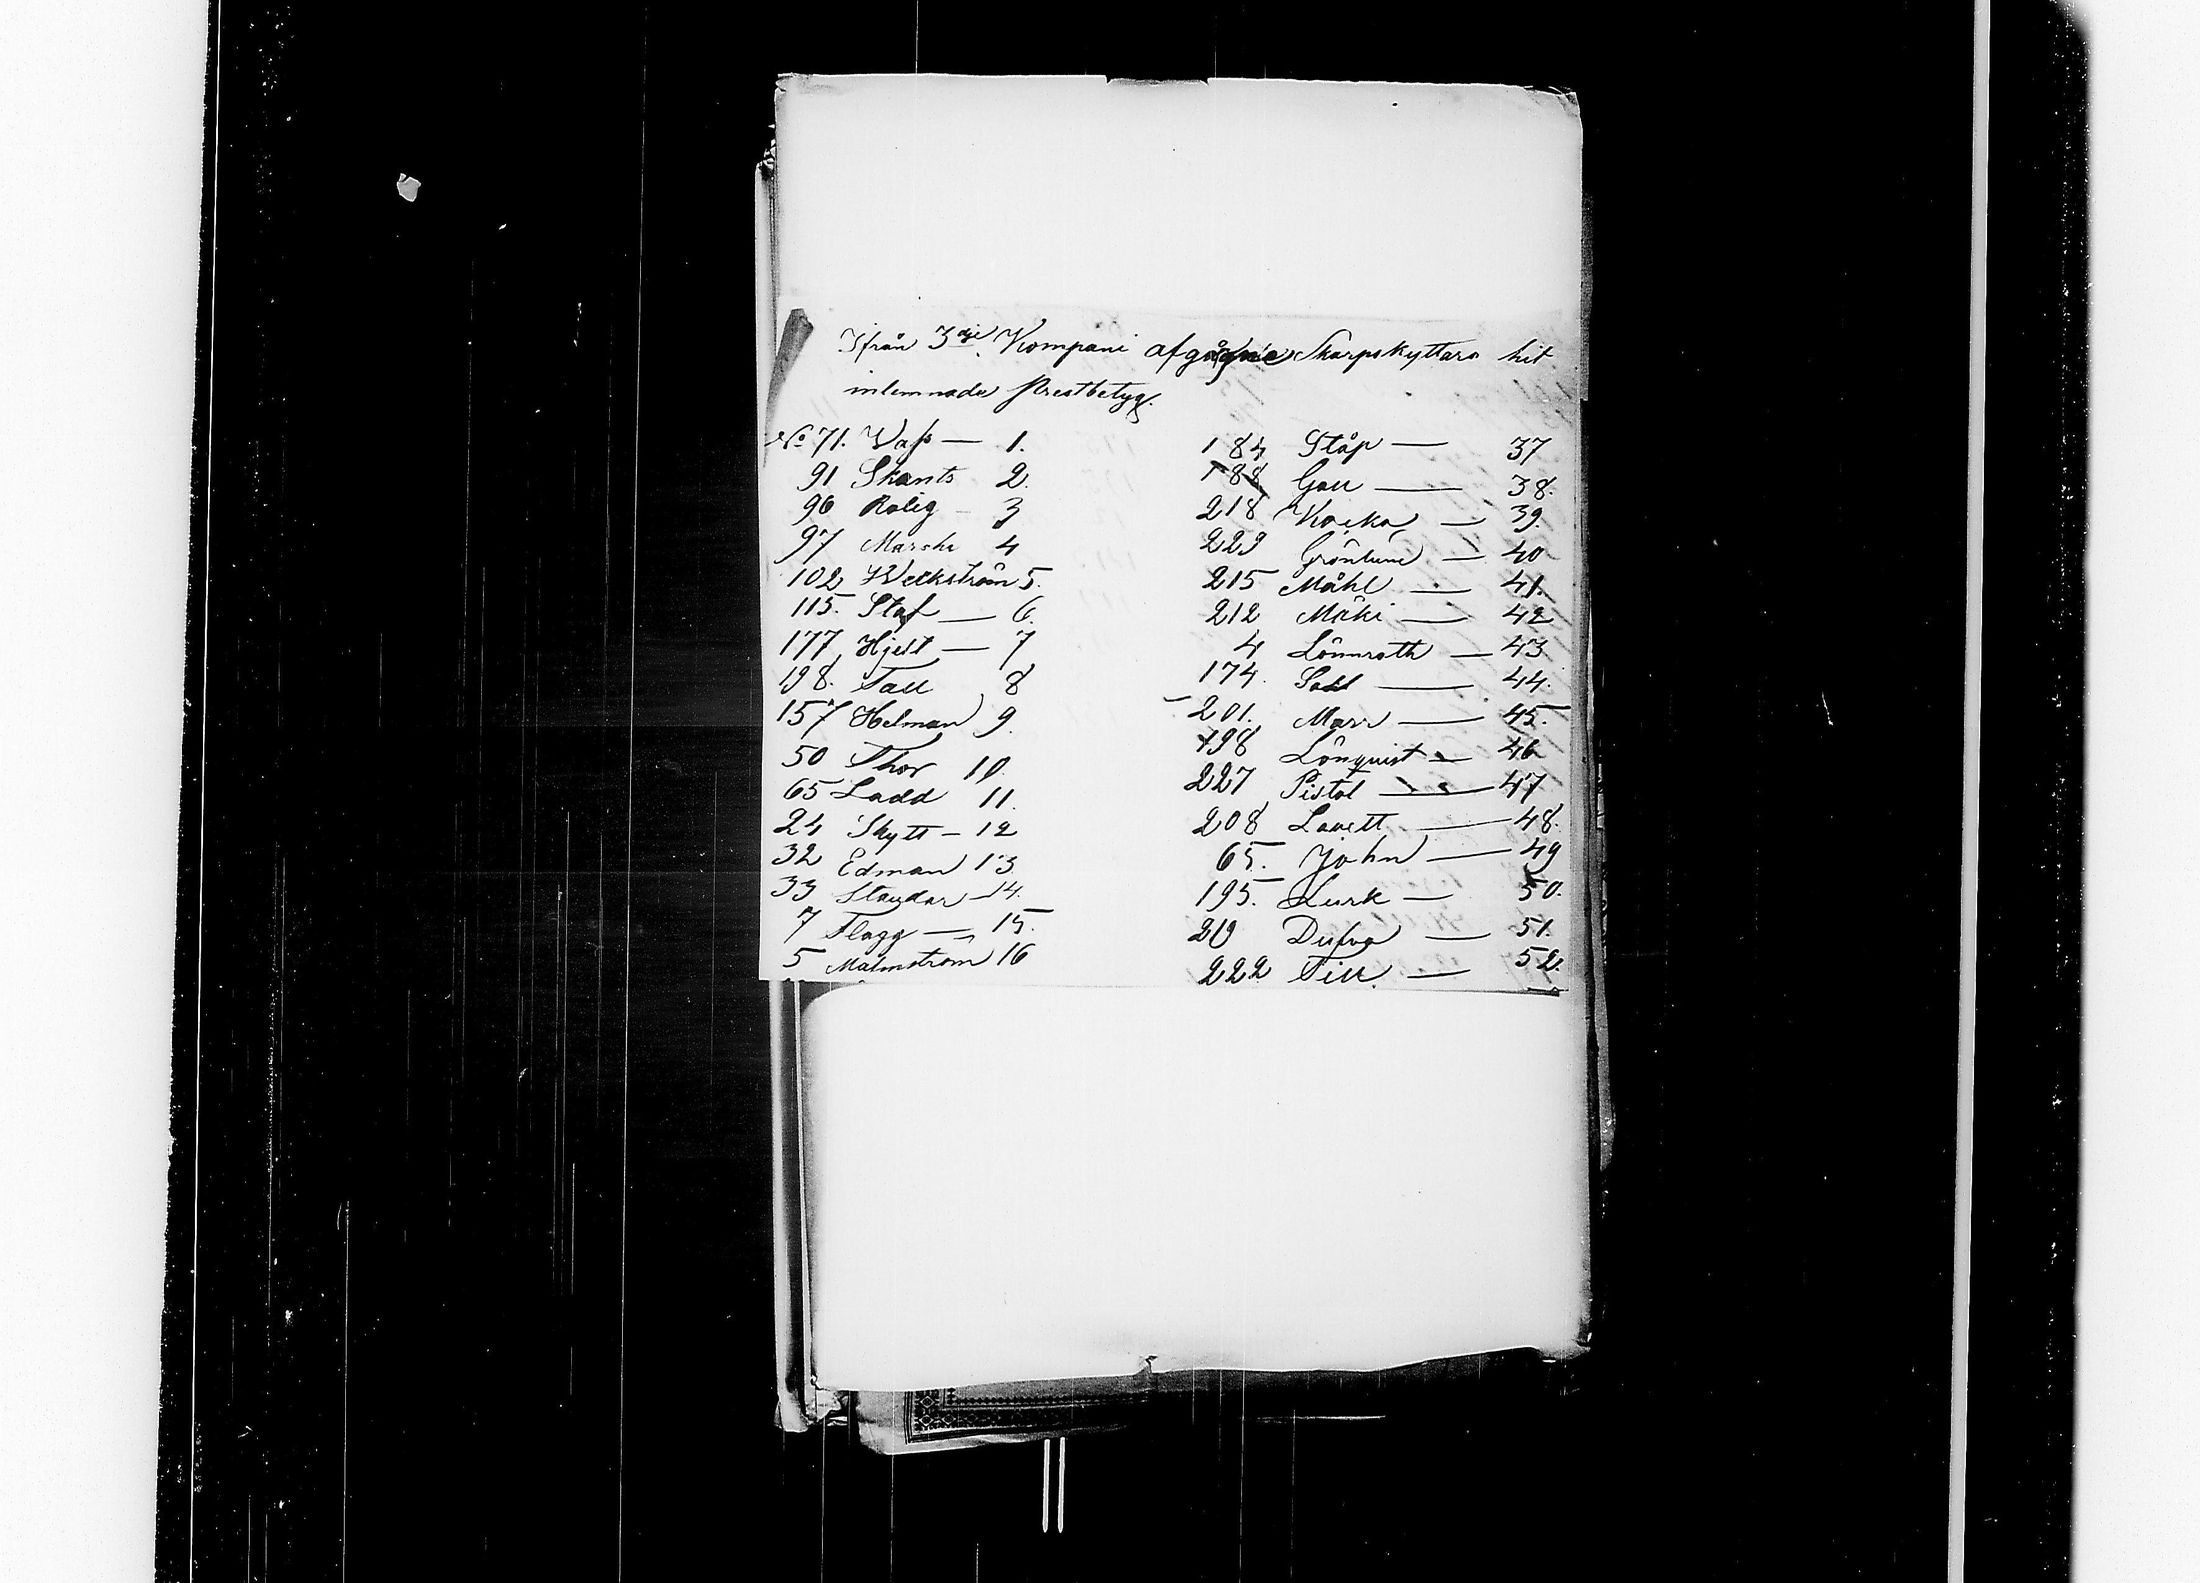 Ifrån 3dje Kompani afgångne Skarpskyttars hit
inlemnade Prestbetyg.
No 71. Vass — 1.
91 Skants 2.
96 Rolig — 3
97 Marsch 4
102 Weckström 5.
115. Staf — 6.
177 Hjelt — 7
198. Tall 8
157 Helman 9.
50 Thor 10.
65 Ladd 11.
24 Skytt — 12
32 Edman 13.
33 Standar — 14.
7 Flagg — 15.
5 Malmström 16
184 Ståp — 37
188 Gall — 38.
218 Koska — 39.
223 Grönlund — 40
215 Måhl — 41.
212 Mäki — 42
4 Lönnroth — 43
174. Sahl — 44.
201. Marr — 45.
198 Lönqvist — 46
227 Pistol — 47
208 Lavett — 48.
65. John — 49
195. Lurk — 50.
210 Dufva — 51.
222 Till. — 52.